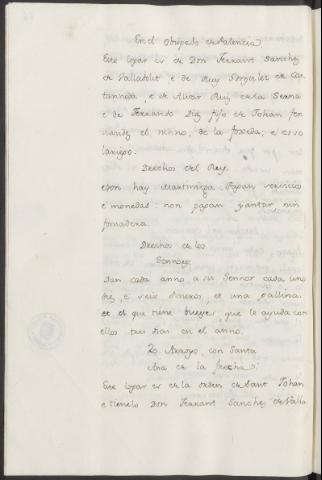 En el Obispado de Palencia
Este logar es de Don Ferrant Sanchez
de Valladolit, e de Ruy Gonzalez de Cas
tanneda, e de Alvar Ruiz de la Serna
e de Ferrando Diz fijo de Johan fer
nandez el ninno, de la foceda, e es so
lariego.
Derechos del Rey.
e non hay Martiniega: Pagan servicios
e monedas: non pagan yantar nin
fonsadera.
Derechos de los
Sennores.
Dan cada anno a su Sennor cada uno
diez e seis dineros, et una gallina.
et el que tiene bueyes que le ayuda con
ellos tres dias en el anno.
Arroyo, con Santa
Ana de la
Este logar es de la orden de Sant Johan
e tienelo Don Ferrant Sanchez de Valla